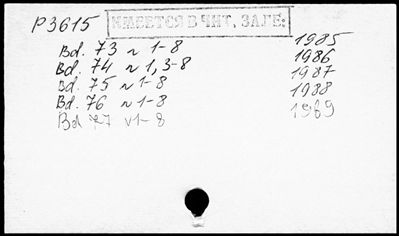 P3615 ИМЕЕТСЯ В ЧИТ. ЗАЛЕ:
Bd. 73 N 1-8 1985
Bd. 74 N 1, 3-8 1986
Bd. 75 N 1-8 1987
Bd. 76 N 1-8 1988
Bd 77 N 1-8 1989